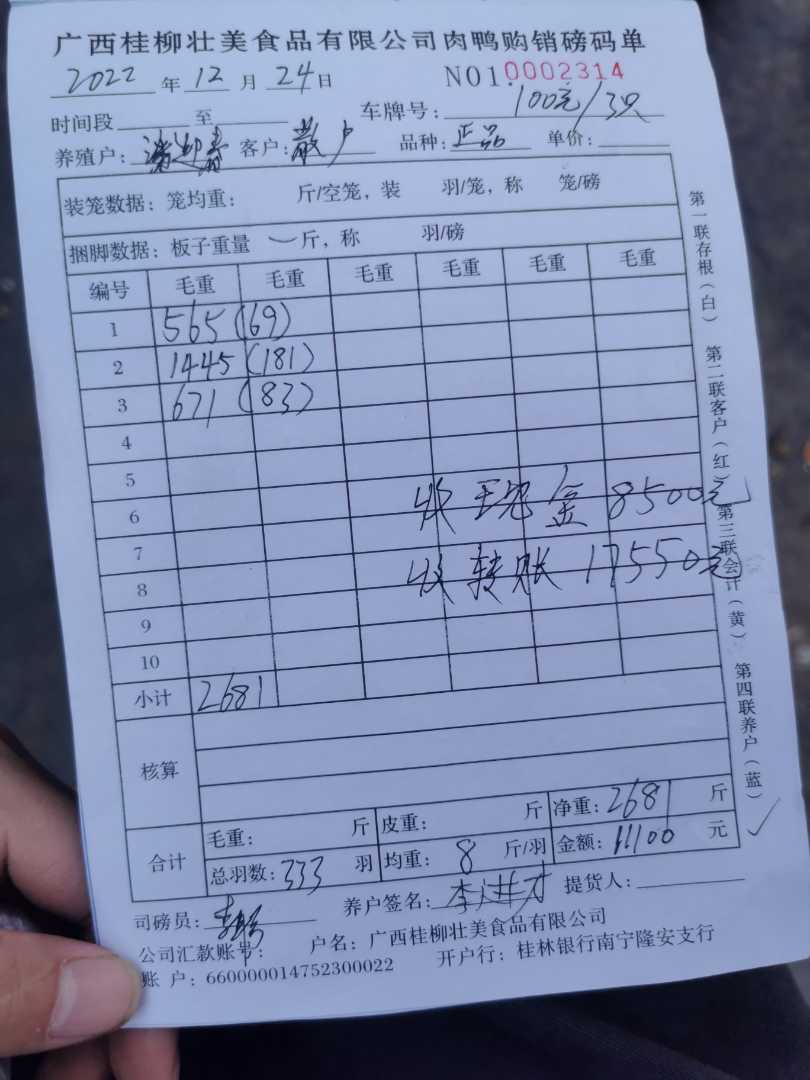 广西桂柳壮美食品有限公司肉鸭购销磅码单
2022 年 12 月 24 日 NO1.0002314
时间段 至 车牌号: 100元/3只
养殖户: 客户: 散户 品种: 正品 单价:
装笼数据: 笼均重: 斤/空笼, 装 羽/笼, 称 笼/磅
捆脚数据: 板子重量 斤, 称 羽/磅
编号 毛重 毛重 毛重 毛重 毛重 毛重
1 565 (69)
2 1445 (181)
3 671 (83)
4
5
6 收 现金 8500元
7
8 收转账 17550元
9
10
小计 2681
核算
合计 毛重: 斤 皮重: 斤 净重: 2681 斤
总羽数: 333 羽 均重: 8 斤/羽 金额: 11100 元
司磅员: 养户签名: 李进才 提货人:
公司汇款账号: 户名: 广西桂柳壮美食品有限公司
账 户: 660000014752300022 开户行: 桂林银行南宁隆安支行
第一联存根(白) 第二联客户(红) 第三联会计(黄) 第四联养户(蓝)